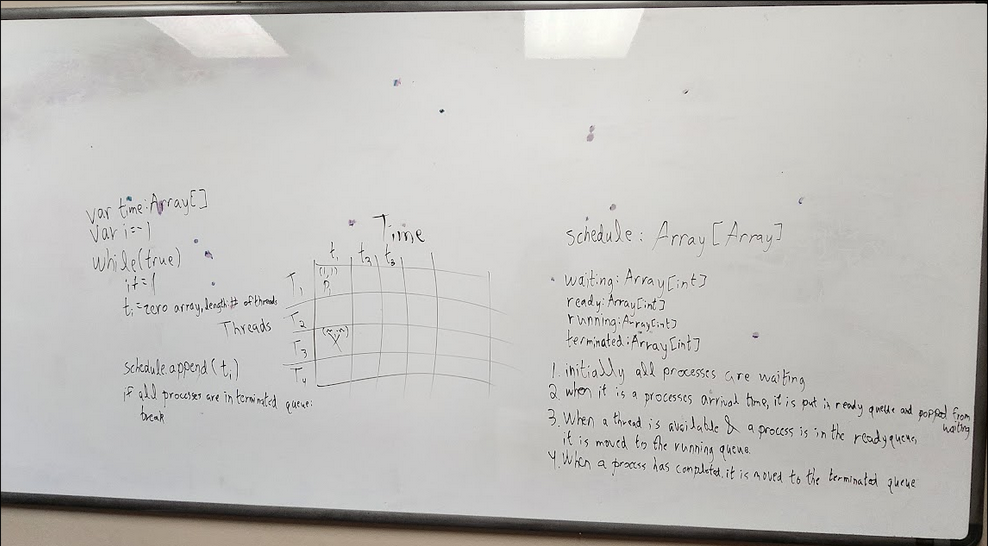 var time:Array[]
var i=-1
while(true)
i+=1
ti=zero array, length:# of threads
schedule.append(ti)
if all processes are in terminated queue:
break
Time
t1 t2 t3
Threads
T1 (1,1)
P1
T2
T3
T4
schedule: Array[Array]
waiting: Array[int]
ready: Array[int]
running: Array[int]
terminated: Array[int]
1. initially all processes are waiting
2. when it is a processes arrival time, it is put in ready queue and popped from
waiting
3. When a thread is available & a process is in the ready queue,
it is moved to the running queue.
4. When a process has completed, it is moved to the terminated queue